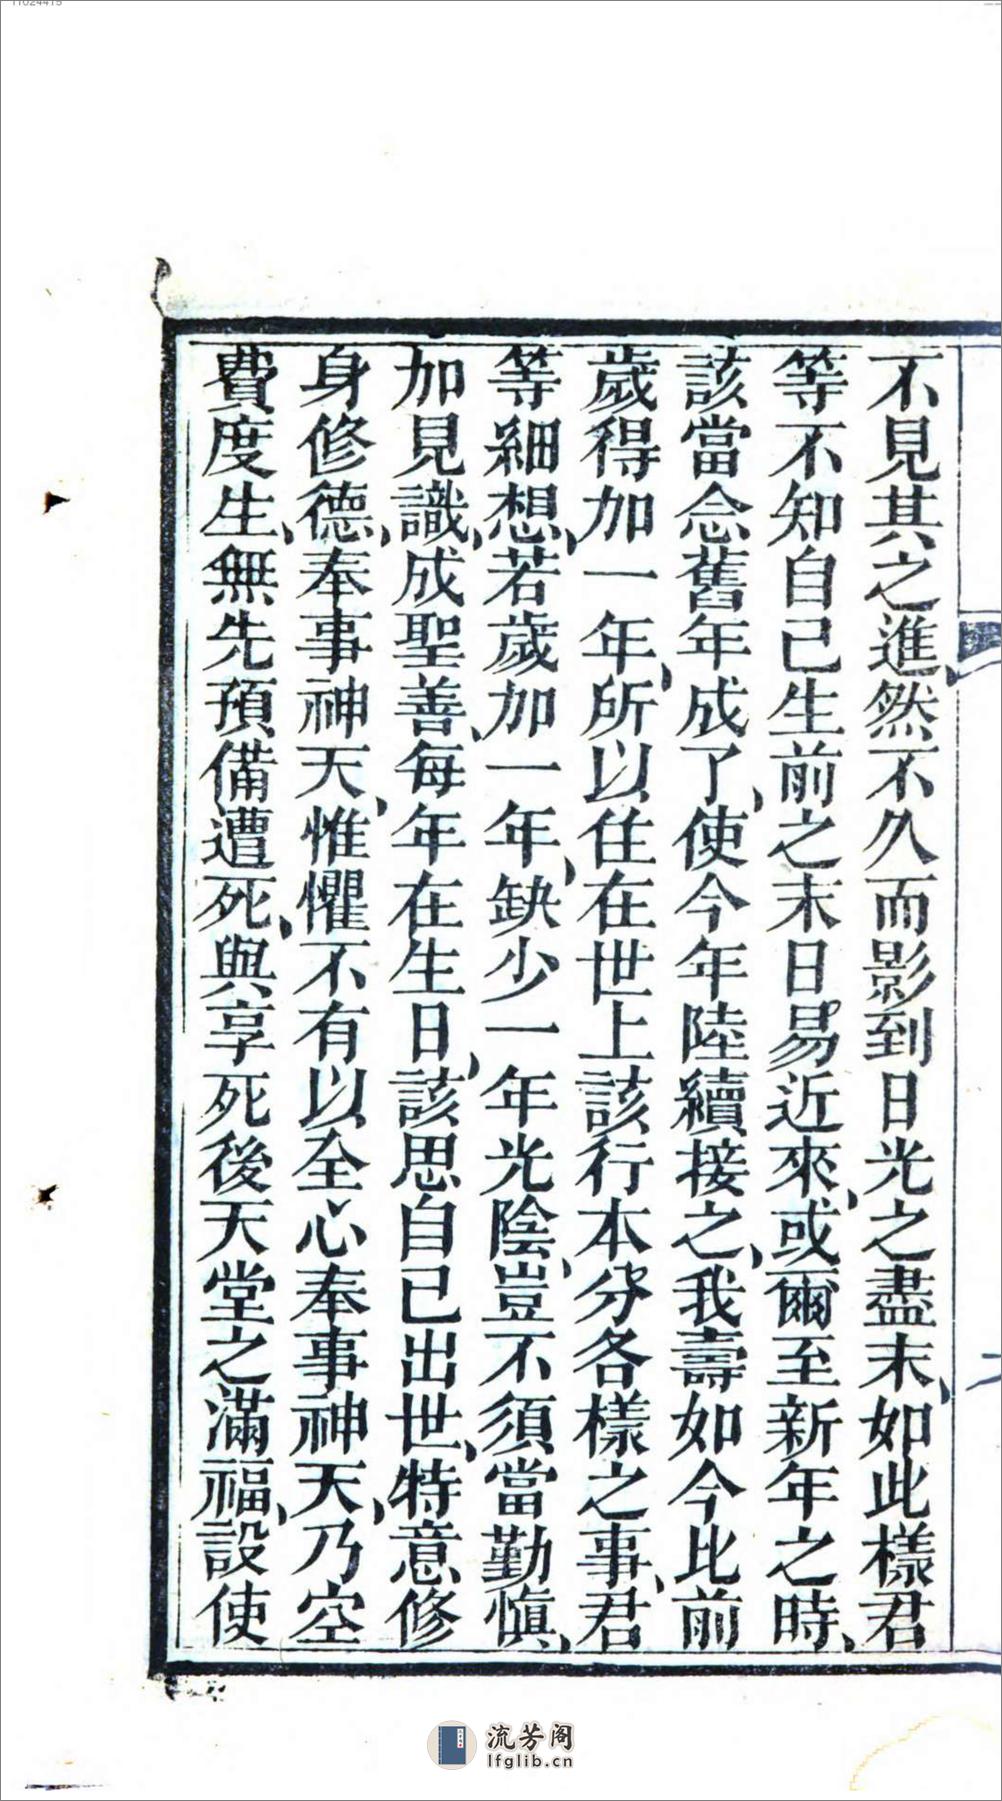 不見其之進、然不久而影到日光之盡末、如此樣君
等不知自己生前之末日易近來、或爾至新年之時、
該當念舊年成了、使今年陸續接之、我壽如今比前
歲得加一年、所以住在世上該行本分各樣之事、君
等細想、若歲加一年、缺少一年光陰、豈不須當勤愼、
加見識、成聖善、每年在生日、該思自己出世、特意修
身修德、奉事神天、惟懼不有以全心奉事神天、乃空
費度生、無先預備遭死、與享死後天堂之滿福、設使
流芳阁
lfglib.cn